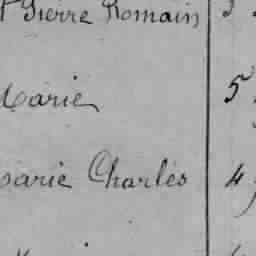 Pierre Romain 3
Marie 5
Marie Charles 4